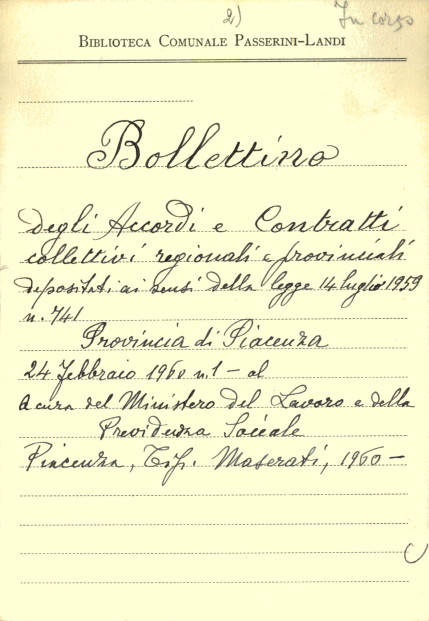 2)
In corso
BIBLIOTECA COMUNALE PASSERINI-LANDI
Bollettino
degli Accordi e Contratti
collettivi regionali e provinciali
depositati ai sensi della legge 14 luglio 1959
n. 741
Provincia di Piacenza
24 Febbraio 1960 n. 1 - al
A cura del Ministero del Lavoro e della
Previdenza Sociale
Piacenza, Tip. Maserati, 1960 -